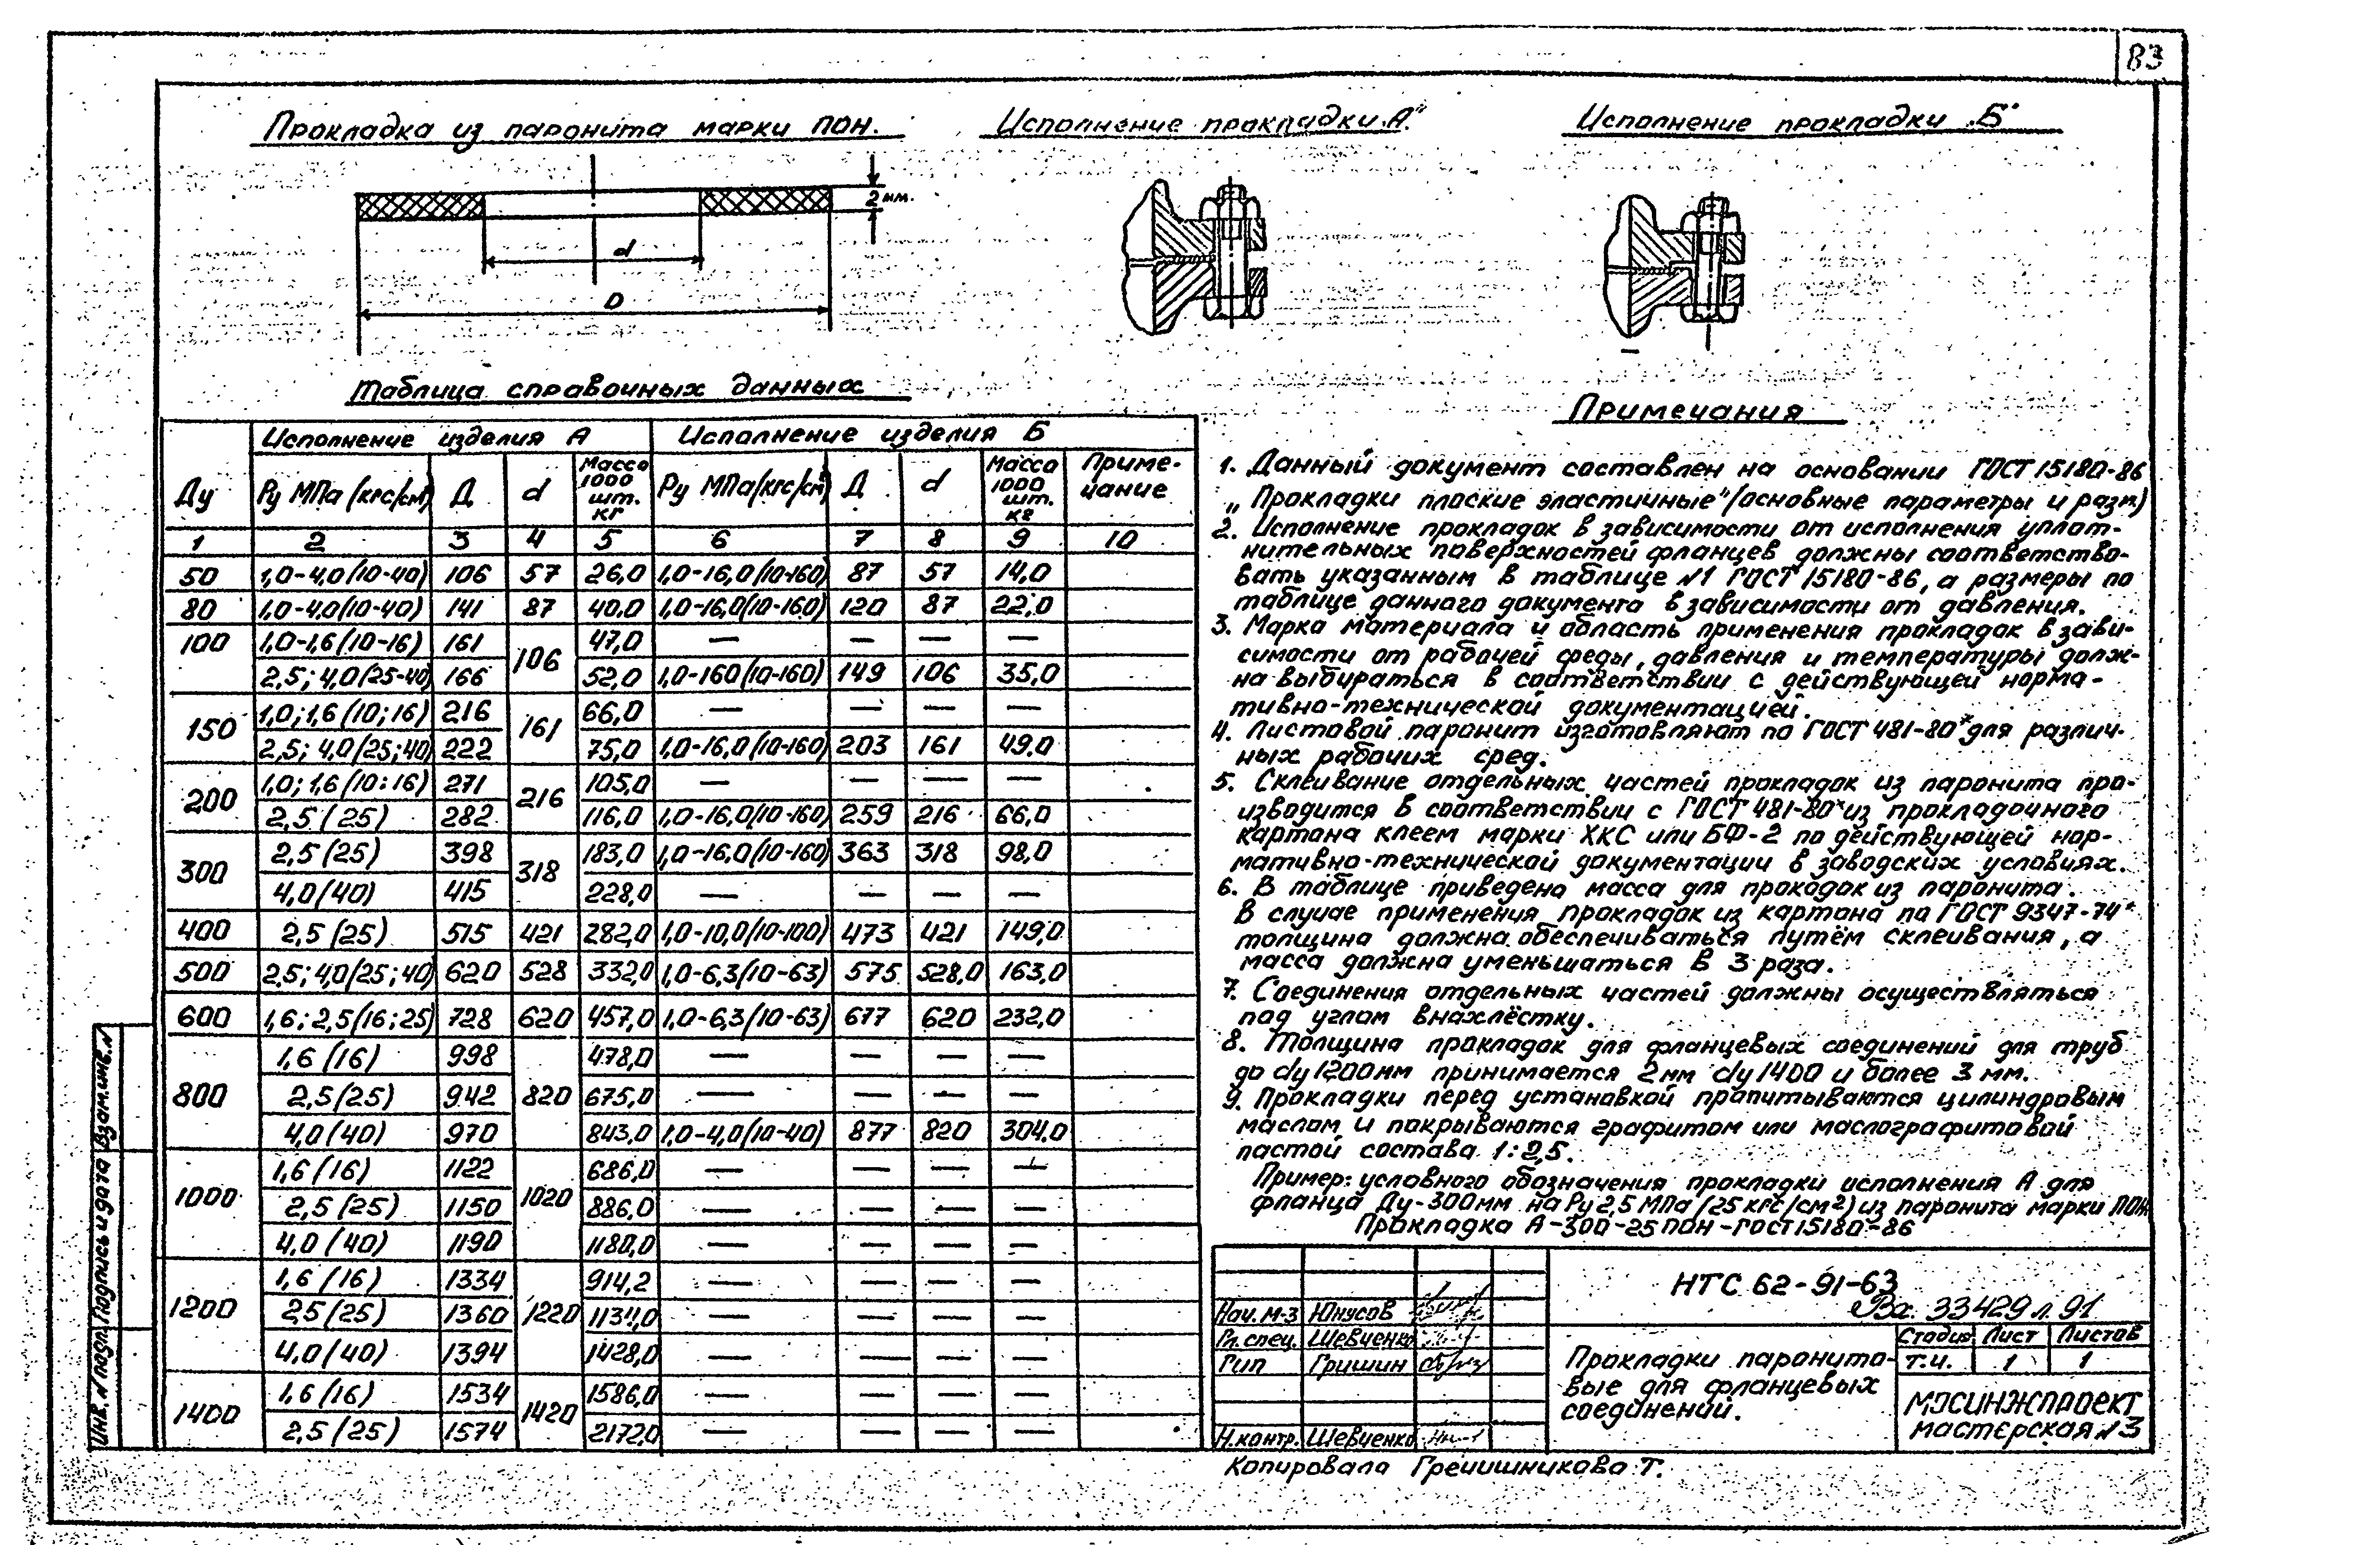 83
Прокладка из паронита марки ПОН.
Исполнение прокладки „А"
Исполнение прокладки „Б"
2 мм.
d
D
Таблица справочных данных
Ду
Исполнение изделия А
Исполнение изделия Б
Ру МПа (кгс/см²) Д d Масса 1000 шт. кг Ру МПа (кгс/см²) Д d Масса 1000 шт. кг Приме-чание
1 2 3 4 5 6 7 8 9 10
50 1,0-4,0(10-40) 106 57 26,0 1,0-16,0(10-160) 87 57 14,0
80 1,0-4,0(10-40) 141 87 40,0 1,0-16,0(10-160) 120 87 22,0
100 1,0-1,6(10-16) 161 106 47,0 — — — —
2,5; 4,0(25-40) 166 52,0 1,0-160(10-160) 149 106 35,0
150 1,0; 1,6(10; 16) 216 161 66,0 — — — —
2,5; 4,0(25; 40) 222 75,0 1,0-16,0(10-160) 203 161 49,0
200 1,0; 1,6(10; 16) 271 216 105,0 — — — —
2,5(25) 282 116,0 1,0-16,0(10-160) 259 216 66,0
300 2,5(25) 398 318 183,0 1,0-16,0(10-160) 363 318 98,0
4,0(40) 415 228,0 — — — —
400 2,5(25) 515 421 282,0 1,0-10,0(10-100) 473 421 149,0
500 2,5; 4,0(25; 40) 620 528 332,0 1,0-6,3(10-63) 575 528,0 163,0
600 1,6; 2,5(16; 25) 728 620 457,0 1,0-6,3(10-63) 677 620 232,0
800 1,6(16) 998 820 478,0 — — — —
2,5(25) 942 675,0 — — — —
4,0(40) 970 843,0 1,0-4,0(10-40) 877 820 304,0
1000 1,6(16) 1122 1020 686,0 — — — —
2,5(25) 1150 886,0 — — — —
4,0(40) 1190 1180,0 — — — —
1200 1,6(16) 1334 1220 914,2 — — — —
2,5(25) 1360 1134,0 — — — —
4,0(40) 1394 1428,0 — — — —
1400 1,6(16) 1534 1420 1586,0 — — — —
2,5(25) 1574 2172,0 — — — —
Примечания
1. Данный документ составлен на основании ГОСТ 15180-86
„Прокладки плоские эластичные" /основные параметры и разм.)
2. Исполнение прокладок в зависимости от исполнения уплот-
нительных поверхностей фланцев должны соответство-
вать указанным в таблице №1 ГОСТ 15180-86, а размеры по
таблице данного документа в зависимости от давления.
3. Марка материала и область применения прокладок в зави-
симости от рабочей среды, давления и температуры долж-
на выбираться в соответствии с действующей норма-
тивно-технической документацией.
4. Листовой паронит изготовляют по ГОСТ 481-80* для различ-
ных рабочих сред.
5. Склеивание отдельных частей прокладок из паронита про-
изводится в соответствии с ГОСТ 481-80* из прокладочного
картона клеем марки ХКС или БФ-2 по действующей нор-
мативно-технической документации в заводских условиях.
6. В таблице приведена масса для прокодок из паронита.
В случае применения прокладок из картона по ГОСТ 9347-74*
толщина должна обеспечиваться путём склеивания, а
масса должна уменьшаться в 3 раза.
7. Соединения отдельных частей должны осуществляться
под углом внахлёстку.
8. Толщина прокладок для фланцевых соединений для труб
до dу 1200мм принимается 2мм dу 1400 и более 3 мм.
9. Прокладки перед установкой пропитываются цилиндровым
маслом и покрываются графитом или маслографитовой
пастой состава 1:2,5.
Пример: условного обозначения прокладки исполнения А для
фланца Ду-300мм на Ру 2,5 МПа (25 кгс/см²) из паронита марки ПОН
Прокладка А-300-25 ПОН-ГОСТ 15180-86
НТС 62-91-63
Вх. 33429 л. 91
Нач. м-3 Юнусов
Гл. спец. Шевченко
Гип Гришин
Н.контр. Шевченко
Прокладки паронито-
вые для фланцевых
соединений.
Стадия Лист Листов
Т.ч. 1 1
МОСИНЖПРОЕКТ
мастерская №3
Копировала Гречишникова Т.
Взам.инв.№
Подпись и дата
Инв. № подл.